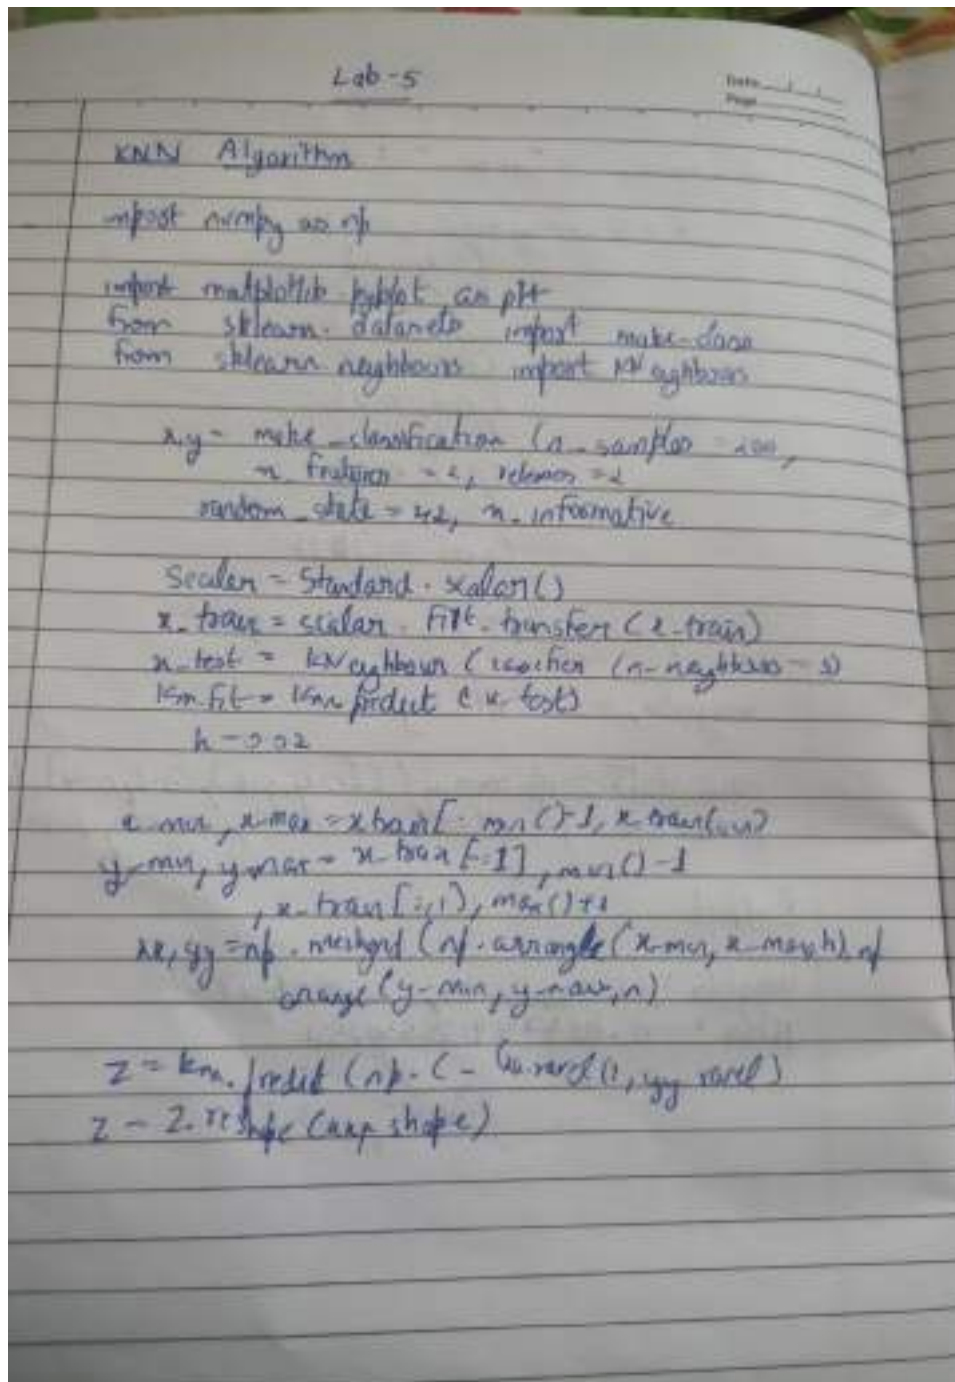 Lab-5
Date
Page
KNN Algorithm
import numpy as np
import matplotlib pyplot as plt
from sklearn. datasets import make-class
from sklearn neighbours import KNeighbours
x,y = make_classification (n_samples = 200,
n_features = 2,
random_state = 42, n_informative
Scaler = Standard.scalar()
x_train = scalar. fit transfer (x_train)
x_test = KNeighbour (n_neighbours = 3)
Knn fit = Knn predict (x_test)
h = 0.02
x_min, x-max = xtrain[
y_min, ymax = x_train [-:1], min()-1
, x_train [:,1), max()+1
xx, yy = np. meshgrid (np. arrange (x-min, x-max,h) np
arange (y-min, y-max,n)
Z = knn. predict (np. (- yy ravel)
Z = Z.reshape ( shape)